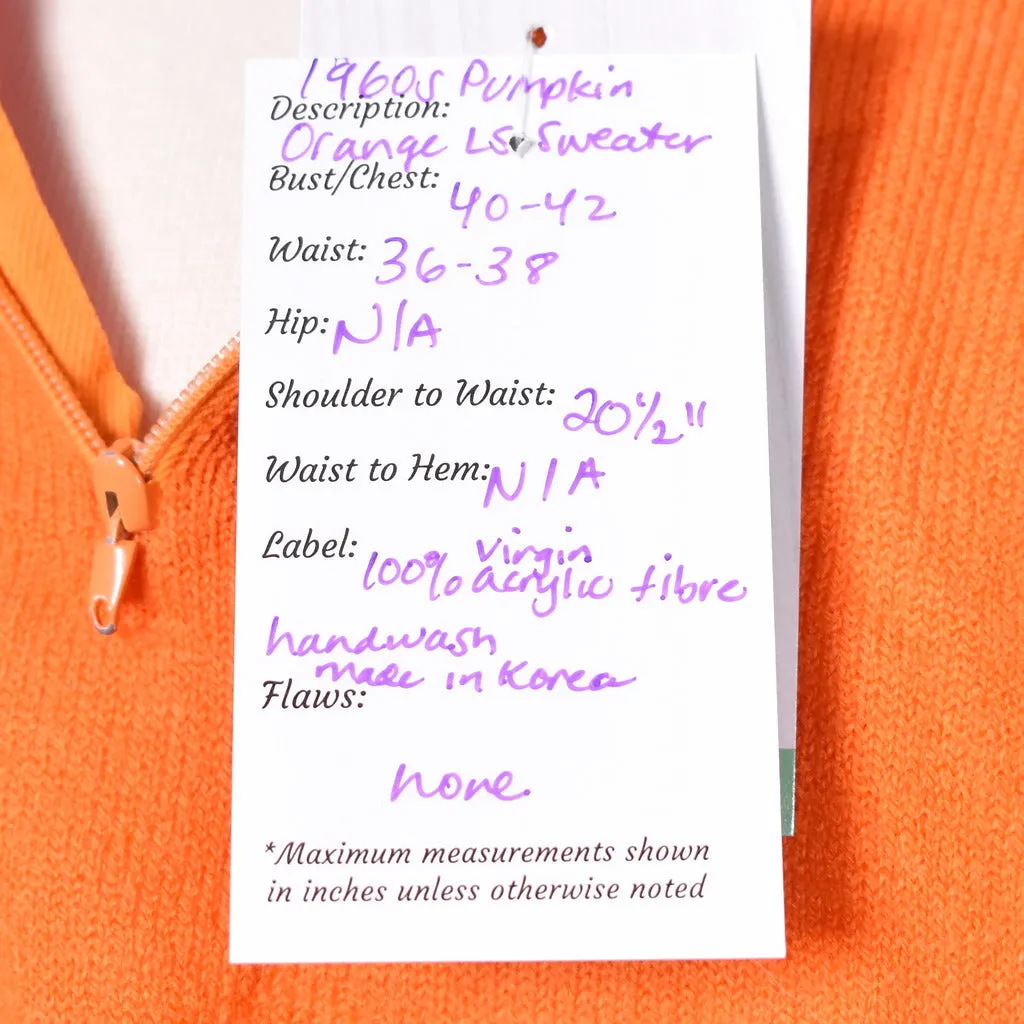 1960s Pumpkin
Description:
Orange LS Sweater
Bust/Chest: 40-42
Waist: 36-38
Hip: N/A
Shoulder to Waist: 20 1/2"
Waist to Hem: N/A
Label: 100% virgin
acrylic fibre
handwash
made in Korea
Flaws:
none.
*Maximum measurements shown
in inches unless otherwise noted